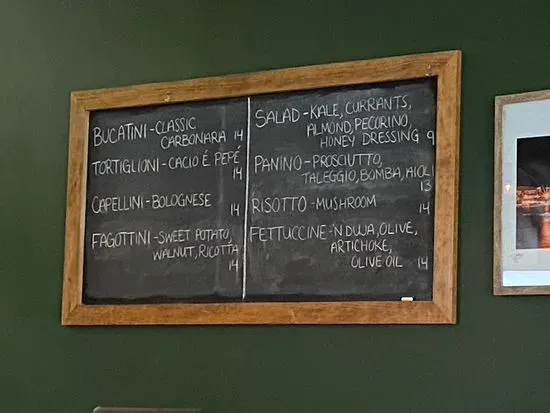 BUCATINI - CLASSIC
CARBONARA 14
TORTIGLIONI - CACIO É PEPÉ
14
CAPELLINI - BOLOGNESE
14
FAGOTTINI - SWEET POTATO,
WALNUT, RICOTTA
14
SALAD - KALE, CURRANTS,
ALMOND, PECORINO,
HONEY DRESSING 9
PANINO - PROSCIUTTO,
TALEGGIO, BOMBA, AIOLI
13
RISOTTO - MUSHROOM
14
FETTUCCINE - 'NDUJA, OLIVE,
ARTICHOKE,
OLIVE OIL 14